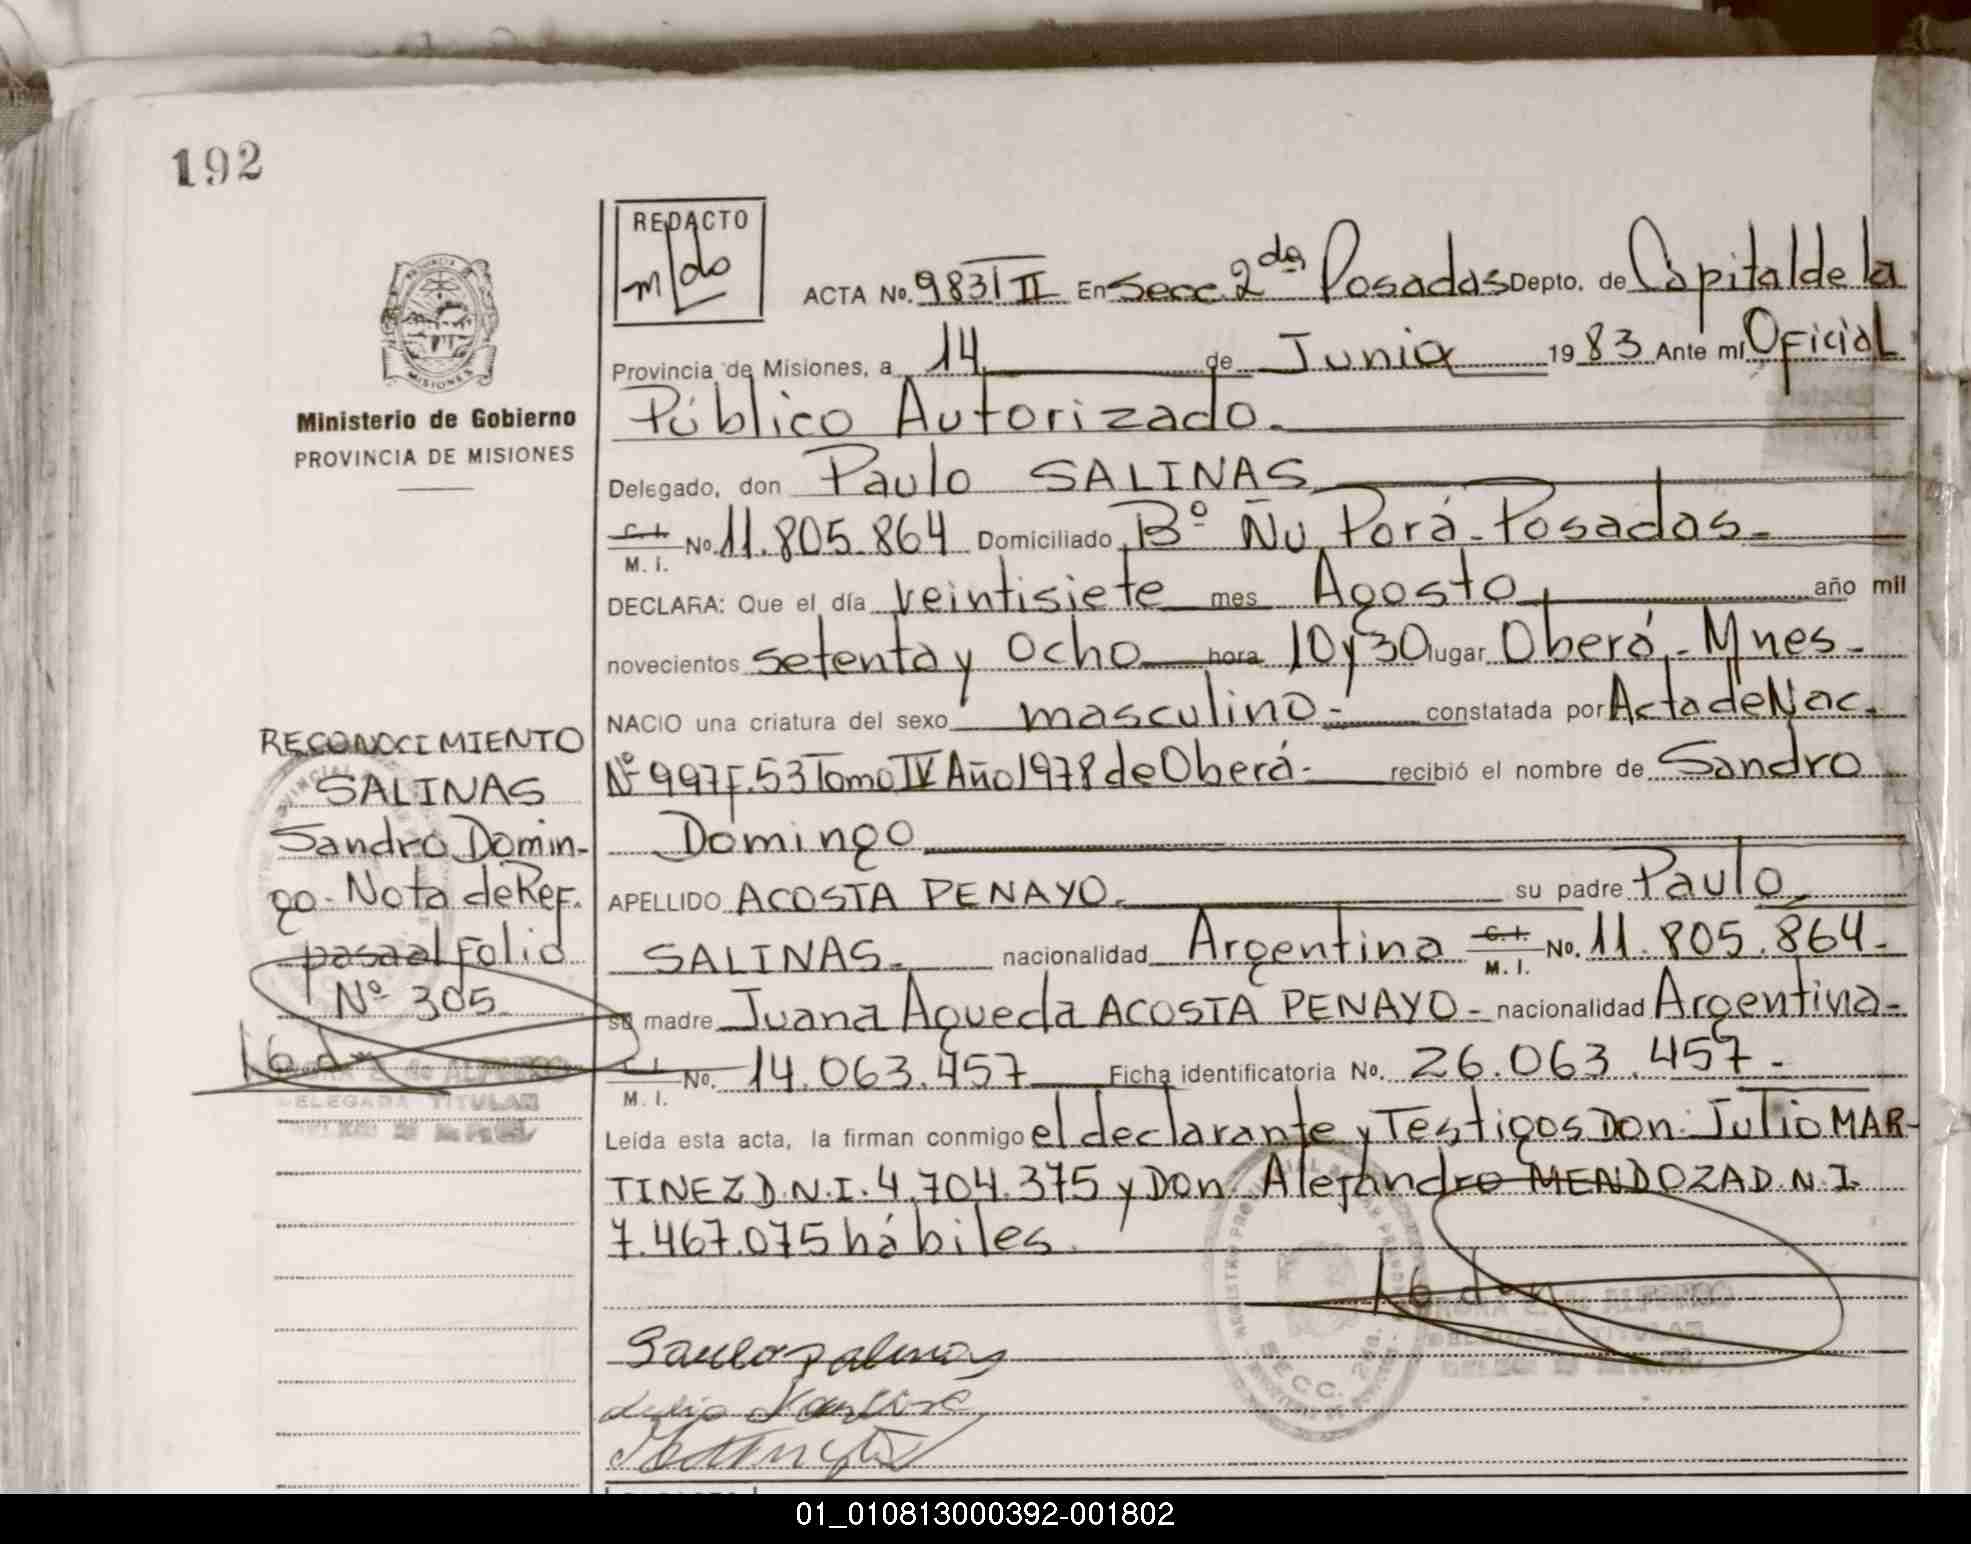 192
REDACTO
m/do
ACTA No. 983 T II En Secc. 2da Posadas Depto. de Capital de la
Provincia de Misiones, a 14 de Junio 1983 Ante mi Oficial
Público Autorizado.
Ministerio de Gobierno
PROVINCIA DE MISIONES
Delegado, don Paulo SALINAS
C. I.
M. I. No. 11.805.864 Domiciliado Bº Ñu Porá - Posadas -
DECLARA: Que el día veintisiete mes Agosto año mil
novecientos setenta y ocho hora 10 y 30 lugar Oberá, - Mnes -
NACIO una criatura del sexo masculino - constatada por Acta de Nac.
Nº 997 F. 53 Tomo IV Año 1978 de Oberá - recibió el nombre de Sandro
Domingo
APELLIDO ACOSTA PENAYO. su padre Paulo
SALINAS. nacionalidad Argentina C. I.
M. I. No. 11.805.864 -
su madre Juana Agueda ACOSTA PENAYO - nacionalidad Argentina -
C. I.
M. I. No. 14.063.457 Ficha identificatoria No. 26.063.457 -
Leída esta acta, la firman conmigo el declarante y Testigos Don: Julio MAR-
TINEZ D.N.I. 4.704.375 y Don Alejandro MENDOZA D.N.I.
7.467.075 hábiles.
RECONOCIMIENTO
SALINAS
Sandro Domin-
go - Nota de Ref.
pasa al Folio
Nº 305.
de ALFONSO
DELEGADA TITULAR
de ALFONSO
DELEGADA TITULAR
SECC. 2da.
Paulo Salinas
01_010813000392-001802